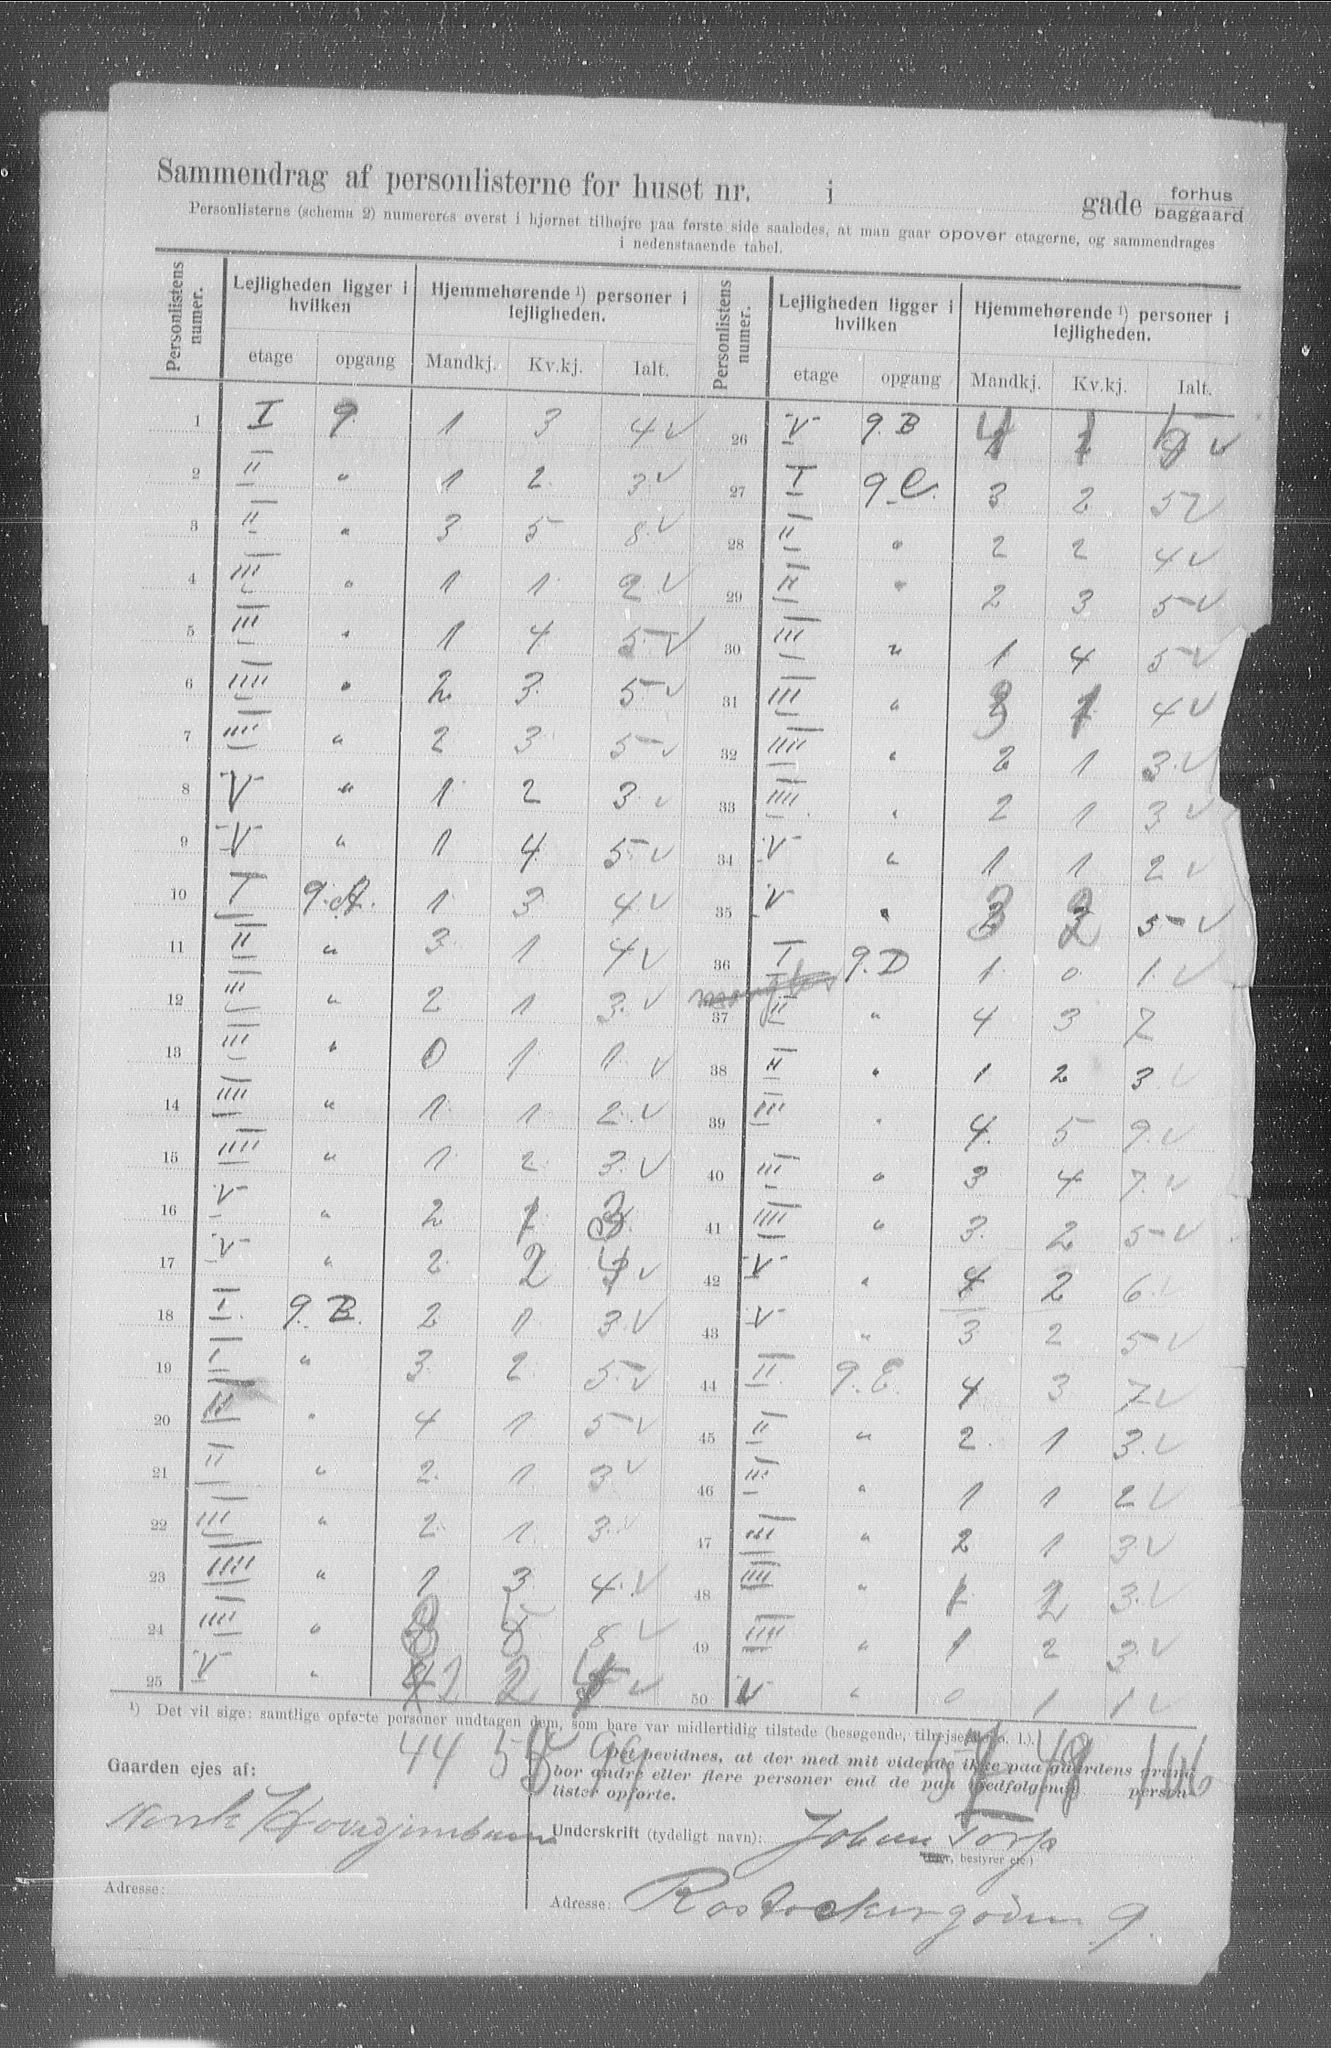 Sammendrag af personlisterne for huset nr. i gade forhus baggaard
Personlisterne (schema 2) numereres øverst i hjørnet tilhøjre paa første side saaledes, at man gaar opover etagerne, og sammendrages
i nedenstaaende tabel.
Personlistens numer. Lejligheden ligger i hvilken Hjemmehørende ¹) personer i lejligheden. Personlistens numer. Lejligheden ligger i hvilken Hjemmehørende ¹) personer i lejligheden.
etage opgang Mandkj. Kv.kj. Ialt. etage opgang Mandkj. Kv.kj. Ialt.
1 I 9. 1 3 4 v 26 V 9. B 4 1 5 v
2 II " 1 2 3 v 27 I 9. C. 3 2 5 v
3 II " 3 5 8 v 28 II " 2 2 4 v
4 III " 1 1 2 v 29 II " 2 3 5 v
5 III " 1 4 5 v 30 III " 1 4 5 v
6 IIII " 2 3 5 v 31 III " 3 1 4 v
7 IIII " 2 3 5 v 32 IIII " 2 1 3 v
8 V " 1 2 3 v 33 IIII " 2 1 3 v
9 V " 1 4 5 v 34 V " 1 1 2 v
10 I 9. A. 1 3 4 v 35 V " 3 2 5 v
11 II " 3 1 4 v 36 I 9. D 1 0 1 v
12 III " 2 1 3 v 37 II " 4 3 7
13 III " 0 1 1 v 38 II " 1 2 3 v
14 IIII " 1 1 2 v 39 III " 4 5 9 v
15 IIII " 1 2 3 v 40 III " 3 4 7 v
16 V " 2 1 3 41 IIII " 3 2 5 v
17 V " 2 2 4 v 42 V " 4 2 6 v
18 I. 9. B. 2 1 3 v 43 V " 3 2 5 v
19 I " 3 2 5 v 44 II 9. E. 4 3 7 v
20 II " 4 1 5 v 45 II " 2 1 3 v
21 II " 2 1 3 v 46 III " 1 1 2 v
22 III " 2 1 3 v 47 III " 2 1 3 v
23 IIII " 1 3 4 v 48 IIII " 1 2 3 v
24 IIII " 3 5 8 v 49 IIII " 1 2 3 v
25 V " 2 2 4 v 50 V " 0 1 1 v
¹) Det vil sige: samtlige opførte personer undtagen dem, som bare var midlertidig tilstede (besøgende, tilrejsende o. l.).
44 99 57 49 106
Gaarden ejes af: Det bevidnes, at der med mit vidende ikke paa gaardens grund
bor andre eller flere personer end de paa medfølgende person-
lister opførte.
Norsk
Underskrift (tydeligt navn): Johan Torp
(Ejer, bestyrer etc.)
Adresse: Adresse: Rostockergaden 9.